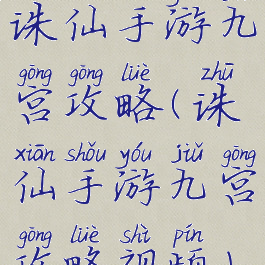 诛仙手游九
gōng gōng lüè zhū
宫攻略(诛
xiān shǒu yóu jiǔ gōng
仙手游九宫
gōng lüè shì pín
攻略视频)